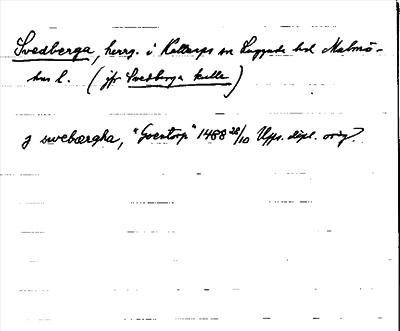 Svedberga, herrg. i Kattarps sn Luggude hd Malmö-
hus l. (jfr Svedberga kulle)
j swebærgha, "Goentorp" 1488 28/10 Upps. dipl. orig.